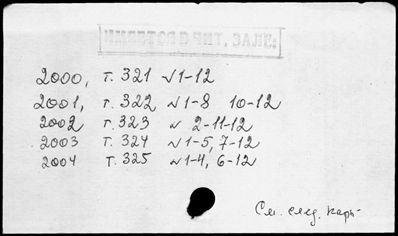 2000, т. 321 №1-12
2001, т. 322 №1-8 10-12
2002 т. 323 № 2-11-12
2003 т. 324 №1-5, 7-12
2004 т. 325 №1-4, 6-12
См. след. карт